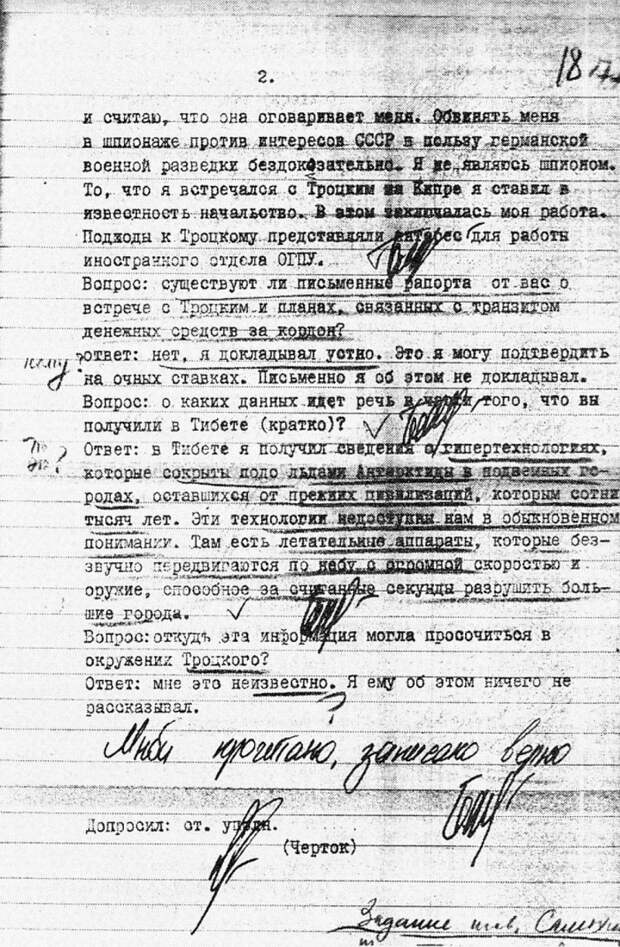 18
2.
и считаю, что она оговаривает меня. Обвинять меня
в шпионаже против интересов СССР в пользу германской
военной разведки бездоказательно. Я не являюсь шпионом.
То, что я встречался с Троцким на Кипре я ставил в
известность начальство. В этом заключалась моя работа.
Подходы к Троцкому представляли интерес для работы
иностранного отдела ОГПУ.
Вопрос: существуют ли письменные рапорта от вас о
встрече с Троцким и планах, связанных с транзитом
денежных средств за кордон?
кому?
ответ: нет, я докладывал устно. Это я могу подтвердить
на очных ставках. Письменно я об этом не докладывал.
Вопрос: о каких данных идет речь в части того, что вы
получили в Тибете (кратко)?
Ответ: в Тибете я получил сведения о гипертехнологиях,
которые сокрыты подо льдами Антарктиды в подземных го-
родах, оставшихся от прежних цивилизаций, которым сотни
тысяч лет. Эти технологии недоступны нам в обыкновенном
понимании. Там есть летательные аппараты, которые без-
звучно передвигаются по небу с огромной скоростью и
оружие, способное за считанные секунды разрушить боль-
шие города.
Вопрос:откудь эта информация могла просочиться в
окружении Троцкого?
Ответ: мне это неизвестно. Я ему об этом ничего не
рассказывал.
?
прочитано, записано верно
Допросил: ст. уполн.
(Черток)
Задание тов.